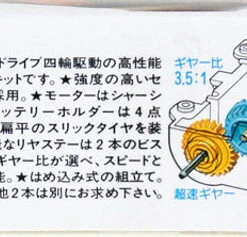 ドライブ四輪駆動の高性能
ットです。★強度の高いセ
採用。★モーターはシャーシ
ッテリーホルダーは4点
扁平のスリックタイヤを装
なリヤステーは2本のビス
ギヤー比が選べ、スピードと
能。★はめ込み式の組立て。
他2本は別にお求め下さい。
ギヤー比
3.5:1
超速ギヤー